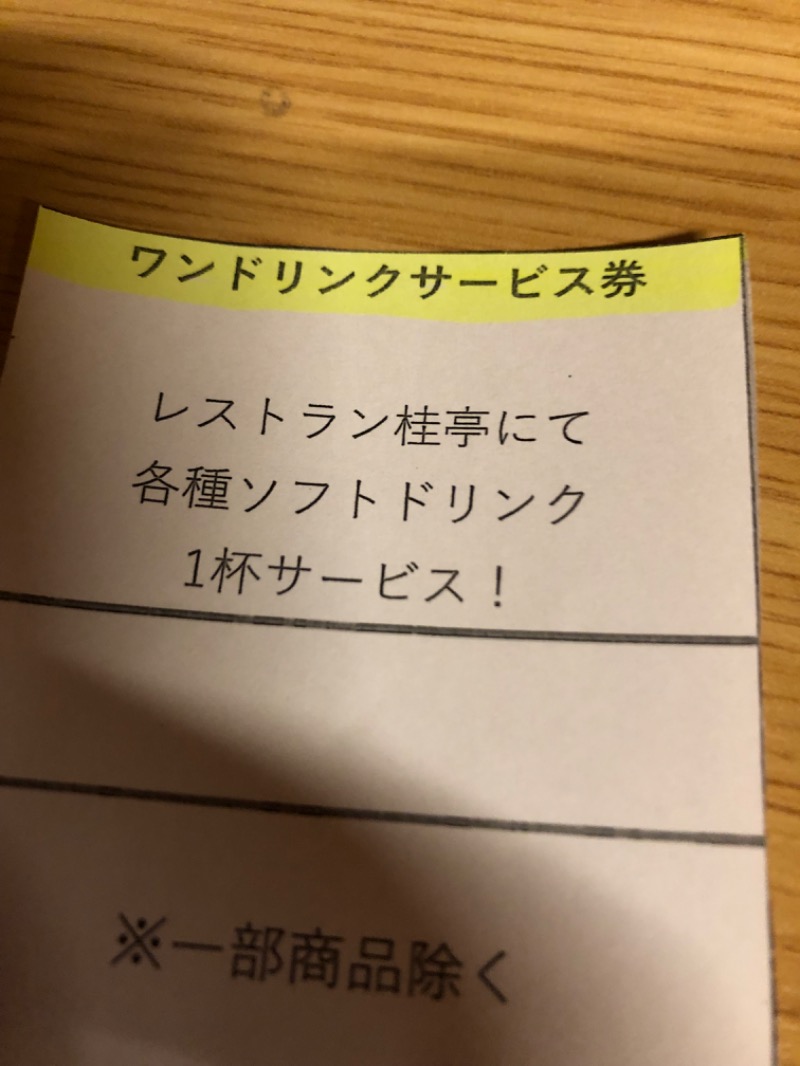 ワンドリンクサービス券
レストラン桂亭にて
各種ソフトドリンク
1杯サービス！
※一部商品除く